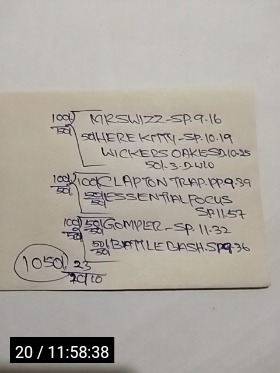 100/50 MRSWIZZ-SP.9.16
50/ HERE KITTY-SP.10.19
WICKERS OAKESD10.25
50/.3.DWLO
100/50 100/ CLAPTON TRAP.PP9.39
50/50 ESSENTIAL FOCUS
SP.11.57
100/50 50/50 GOMPLER-SP.11.32
50/50 BATTLE DASH.SP9.36
1050/ 23
20/10
20 / 11:58:38